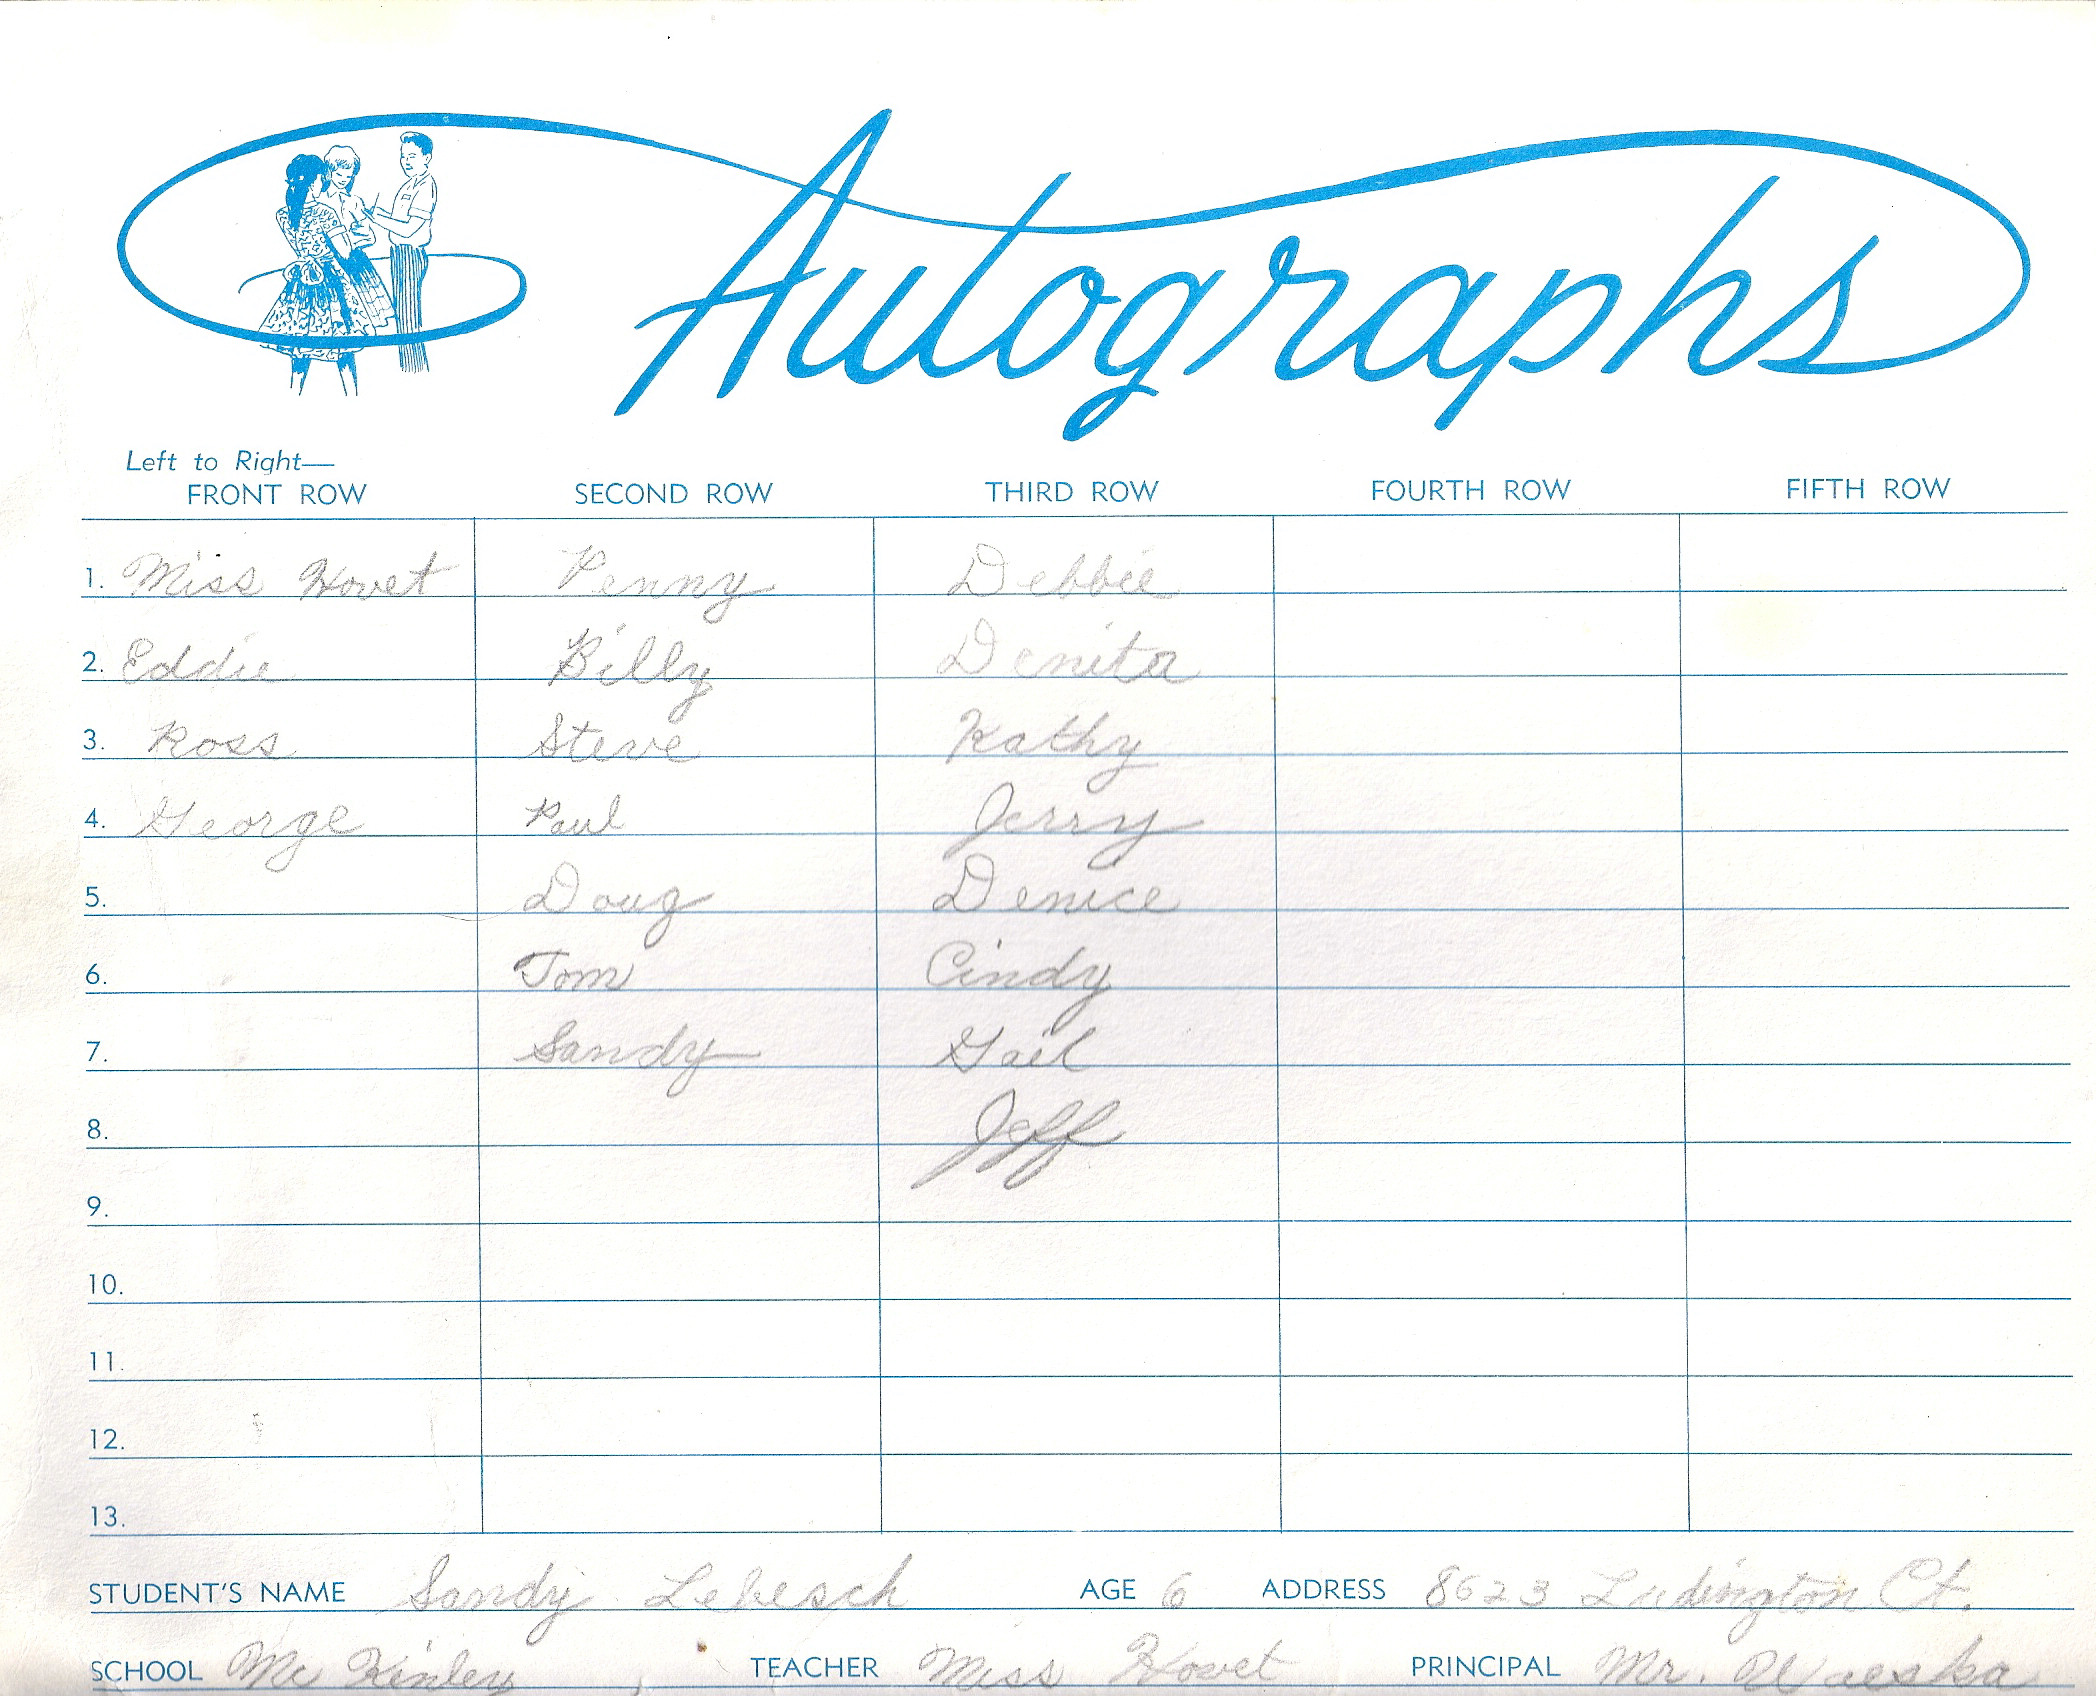 Autographs
Left to Right—
FRONT ROW SECOND ROW THIRD ROW FOURTH ROW FIFTH ROW
1. Miss Hovet Penny Debbie
2. Eddie Billy Denita
3. Ross Steve Kathy
4. George Paul Jerry
5. Doug Denice
6. Tom Cindy
7. Sandy Gail
8. Jeff
9.
10.
11.
12.
13.
STUDENT'S NAME Sandy Lebesch AGE 6 ADDRESS 8623 Ludington Ct.
SCHOOL Mc Kinley TEACHER Miss Hovet PRINCIPAL Mr.